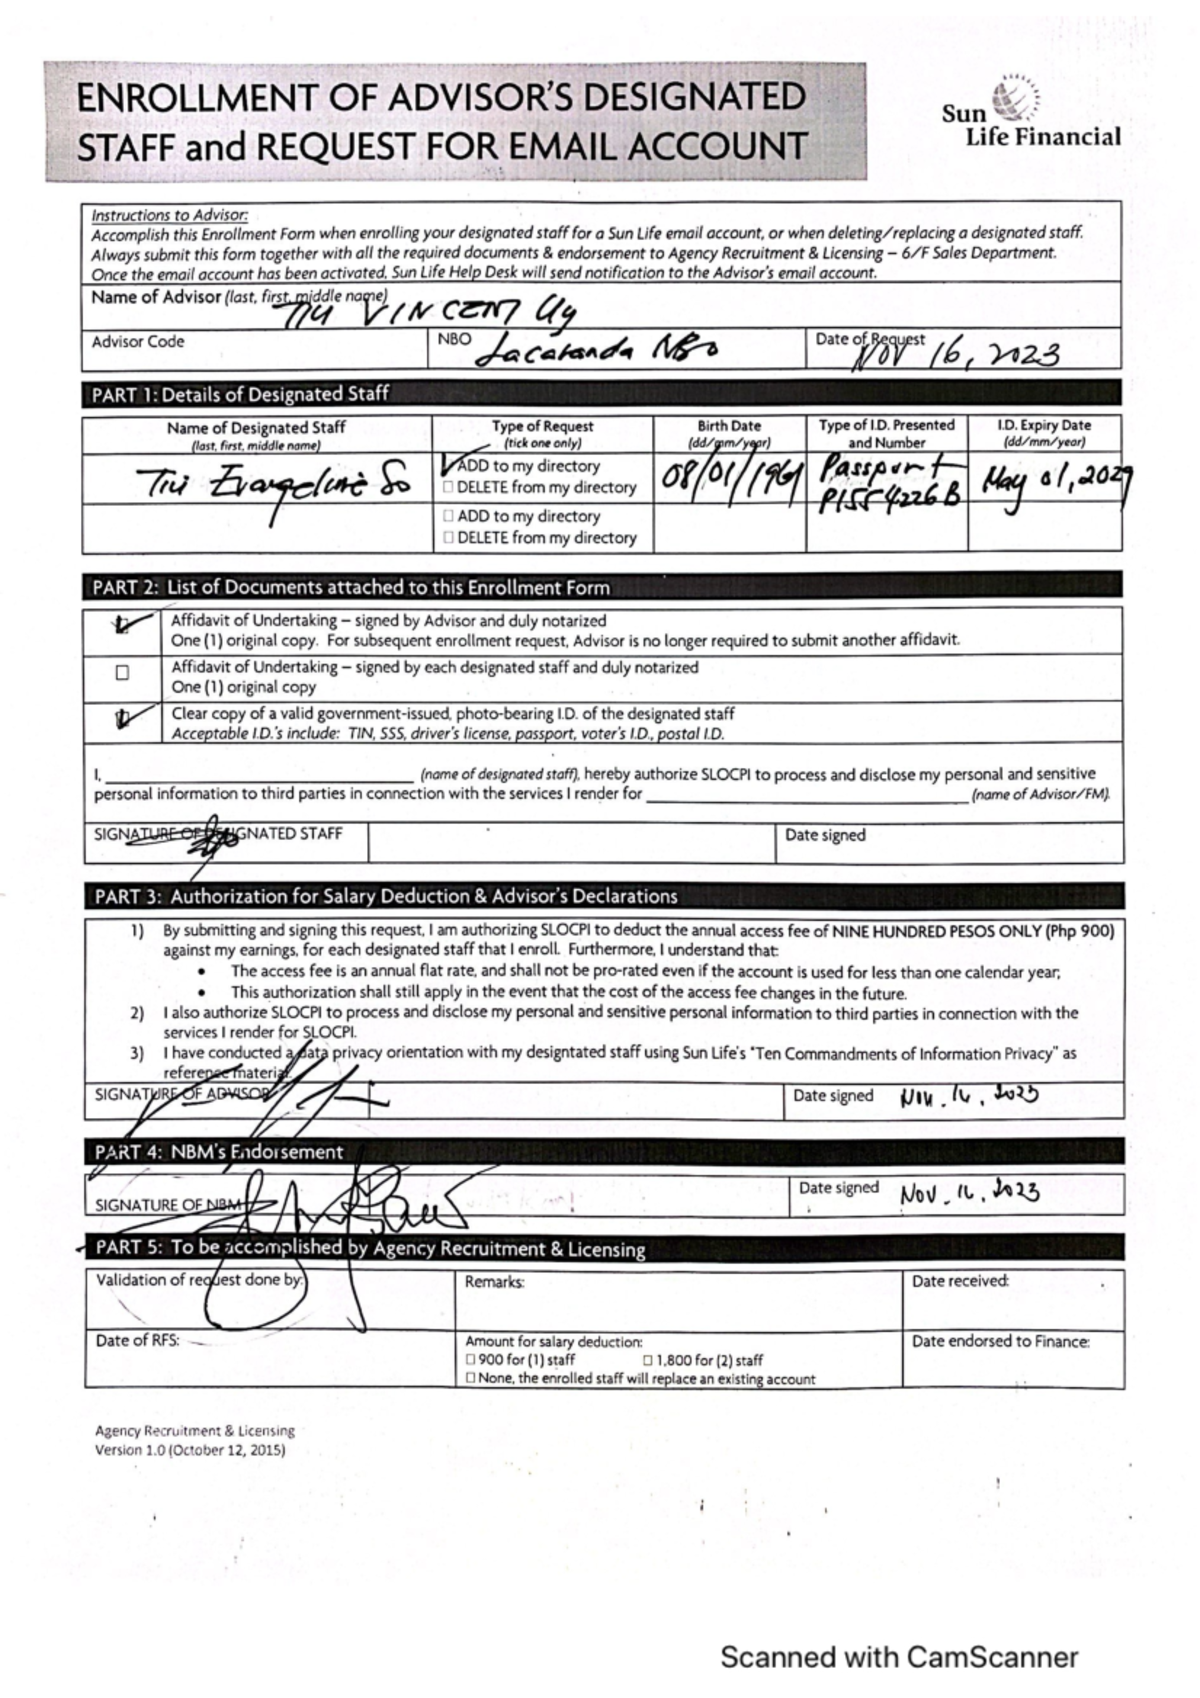 ENROLLMENT OF ADVISOR'S DESIGNATED
STAFF and REQUEST FOR EMAIL ACCOUNT
Sun
Life Financial
Instructions to Advisor:
Accomplish this Enrollment Form when enrolling your designated staff for a Sun Life email account, or when deleting/replacing a designated staff.
Always submit this form together with all the required documents & endorsement to Agency Recruitment & Licensing – 6/F Sales Department.
Once the email account has been activated, Sun Life Help Desk will send notification to the Advisor's email account.
Name of Advisor (last, first, middle name)
VINCENT Uy
Advisor Code
NBO Jacaranda NBO
Date of Request NOV 16, 2023
PART 1: Details of Designated Staff
Name of Designated Staff (last, first, middle name)
Type of Request (tick one only)
Birth Date (dd/mm/year)
Type of I.D. Presented and Number
I.D. Expiry Date (dd/mm/year)
Evangeline So
ADD to my directory
DELETE from my directory
08/01/1961
Passport
P1554226B
May 01, 2029
ADD to my directory
DELETE from my directory
PART 2: List of Documents attached to this Enrollment Form
Affidavit of Undertaking – signed by Advisor and duly notarized
One (1) original copy. For subsequent enrollment request, Advisor is no longer required to submit another affidavit.
Affidavit of Undertaking – signed by each designated staff and duly notarized
One (1) original copy
Clear copy of a valid government-issued, photo-bearing I.D. of the designated staff
Acceptable I.D.'s include: TIN, SSS, driver's license, passport, voter's I.D., postal I.D.
I, ______________ (name of designated staff), hereby authorize SLOCPI to process and disclose my personal and sensitive
personal information to third parties in connection with the services I render for ______________ (name of Advisor/FM).
SIGNATURE OF DESIGNATED STAFF
Date signed
PART 3: Authorization for Salary Deduction & Advisor's Declarations
1) By submitting and signing this request, I am authorizing SLOCPI to deduct the annual access fee of NINE HUNDRED PESOS ONLY (Php 900)
against my earnings, for each designated staff that I enroll. Furthermore, I understand that:
• The access fee is an annual flat rate, and shall not be pro-rated even if the account is used for less than one calendar year;
• This authorization shall still apply in the event that the cost of the access fee changes in the future.
2) I also authorize SLOCPI to process and disclose my personal and sensitive personal information to third parties in connection with the
services I render for SLOCPI.
3) I have conducted a data privacy orientation with my designtated staff using Sun Life's "Ten Commandments of Information Privacy" as
reference material.
SIGNATURE OF ADVISOR
Date signed Nov. 16, 2023
PART 4: NBM's Endorsement
SIGNATURE OF NBM
Date signed Nov. 16, 2023
PART 5: To be accomplished by Agency Recruitment & Licensing
Validation of request done by:
Remarks:
Date received:
Date of RFS:
Amount for salary deduction:
900 for (1) staff
1,800 for (2) staff
None, the enrolled staff will replace an existing account
Date endorsed to Finance:
Agency Recruitment & Licensing
Version 1.0 (October 12, 2015)
Scanned with CamScanner